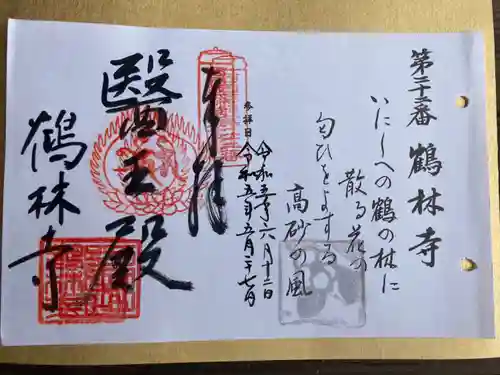 第二十二番 鶴林寺
いにしへの鶴の林に
散る花の
匂ひをよする
高砂の風
令和五年六月十二日
参拝日 令和五年五月二十七日
奉拝
醫王殿
鶴林寺